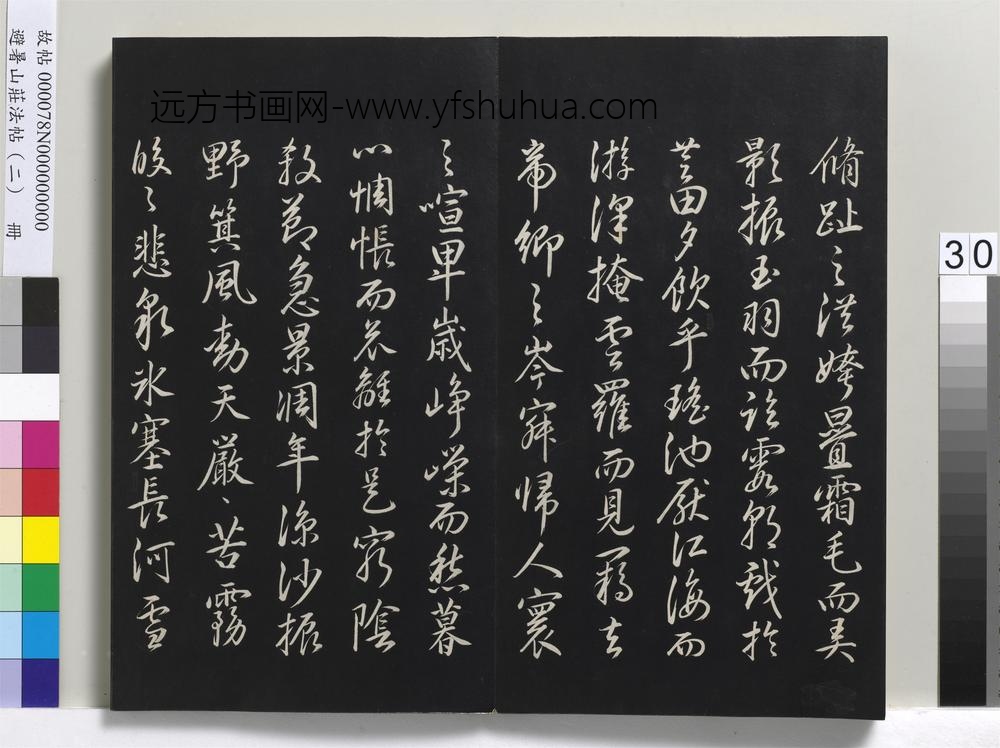 远方书画网-www.yfshuhua.com
脩趾之洪姱疊霜毛而弄
影振玉羽而臨霞朝戲於
芝田夕飲乎瑤池厭江海而
游澤掩雲羅而見羈去
帝鄉之岑寂歸人寰
之喧卑歲崢嶸而愁暮
心惆悵而哀離於是窮陰
殺節急景凋年涼沙振
野箕風動天嚴々苦霧
皎々悲泉冰塞長河雪
故帖 000078N000000000
避暑山莊法帖(二) 冊
30